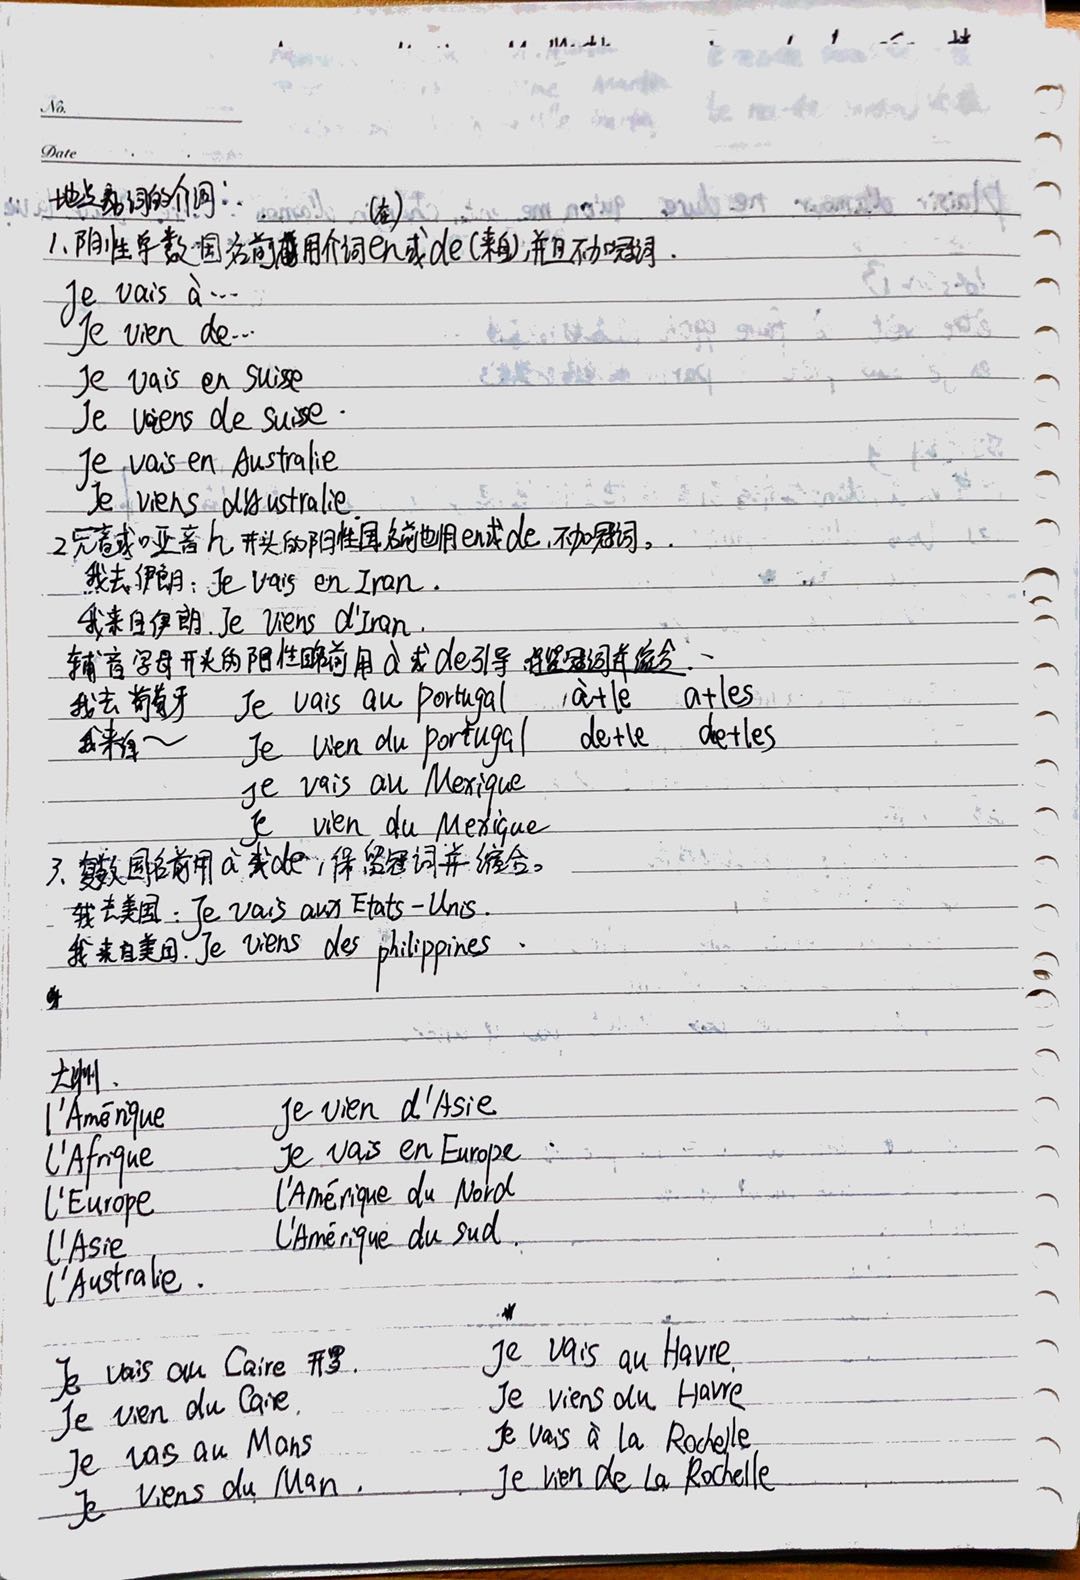 No.
Date
地点名词的介词：
(在)
1、阴性单数国名前用介词en或de(来自)，并且不加冠词．
Je vais à…
Je vien de…
Je vais en Suisse
Je viens de suisse．
Je vais en Australie
Je viens d'Australie.
2元音或哑音h开头的阳性国名前也用en或de，不加冠词。
我去伊朗：Je vais en Iran．
我来自伊朗．Je viens d'Iran．
辅音字母开头的阳性国名前用à或de引导 保留冠词并缩合．
我去葡萄牙 Je vais au Portugal à+le a+les
我来自～ Je vien du portugal de+le de+les
Je vais au Mexique
Je vien du Mexique
3、复数国名前用à或de，保留冠词并缩合。
我去美国：Je vais aux Etats-Unis．
我来自美国．Je viens des philippines．
大洲．
l'Amérique Je vien d'Asie
l'Afrique Je vais en Europe
l'Europe l'Amérique du Nord
l'Asie l'Amérique du sud．
l'Australie．
Je vais au Caire 开罗． Je vais au Havre.
Je vien du Caire. Je viens du Havre
Je vais au Mans Je vais à La Rochelle
Je viens du Man． Je vien de La Rochelle